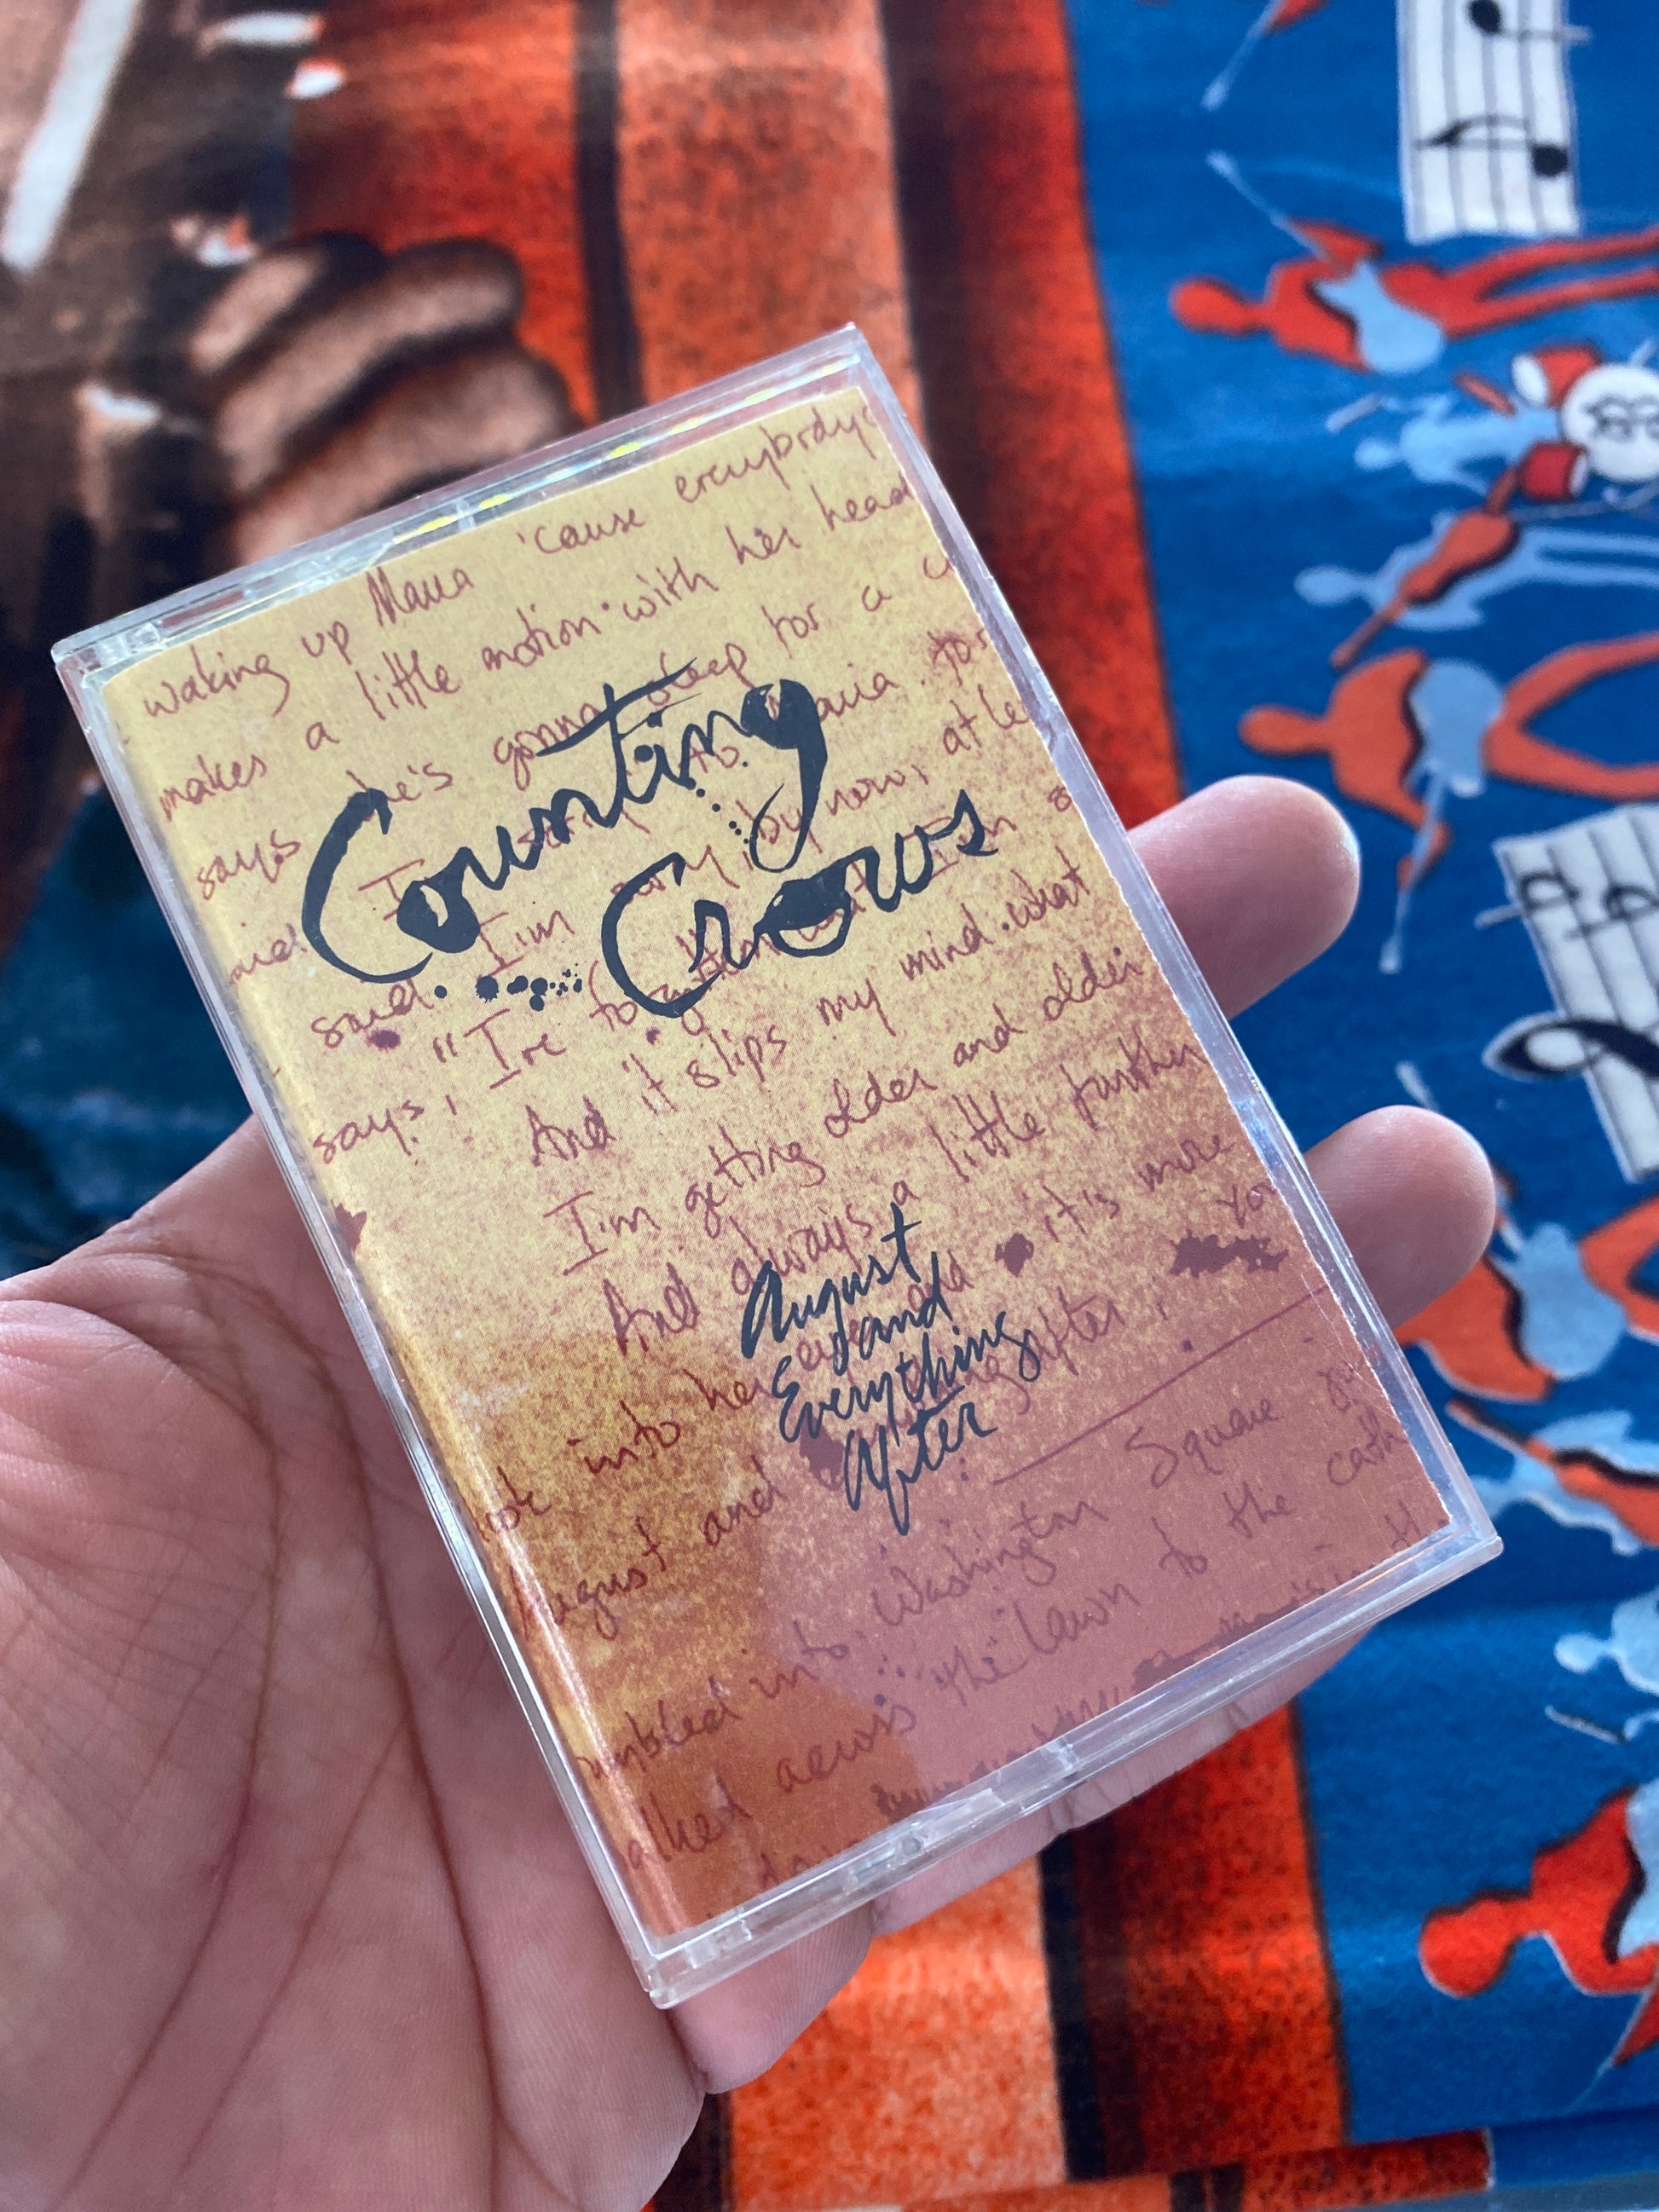 waking up Maria 'cause everybody's
makes a little motion with her head
says he's gonna sleep for a
said I'm sorry to Maria. for
Counting
said. I'm sorry by now, at le
Crows
says, "I've
And it slips my mind. what
I'm getting older and older
And always a little further
into her it's more
August
and
Everything
After
August and after, You
into Washington Square
across the lawn to the cath